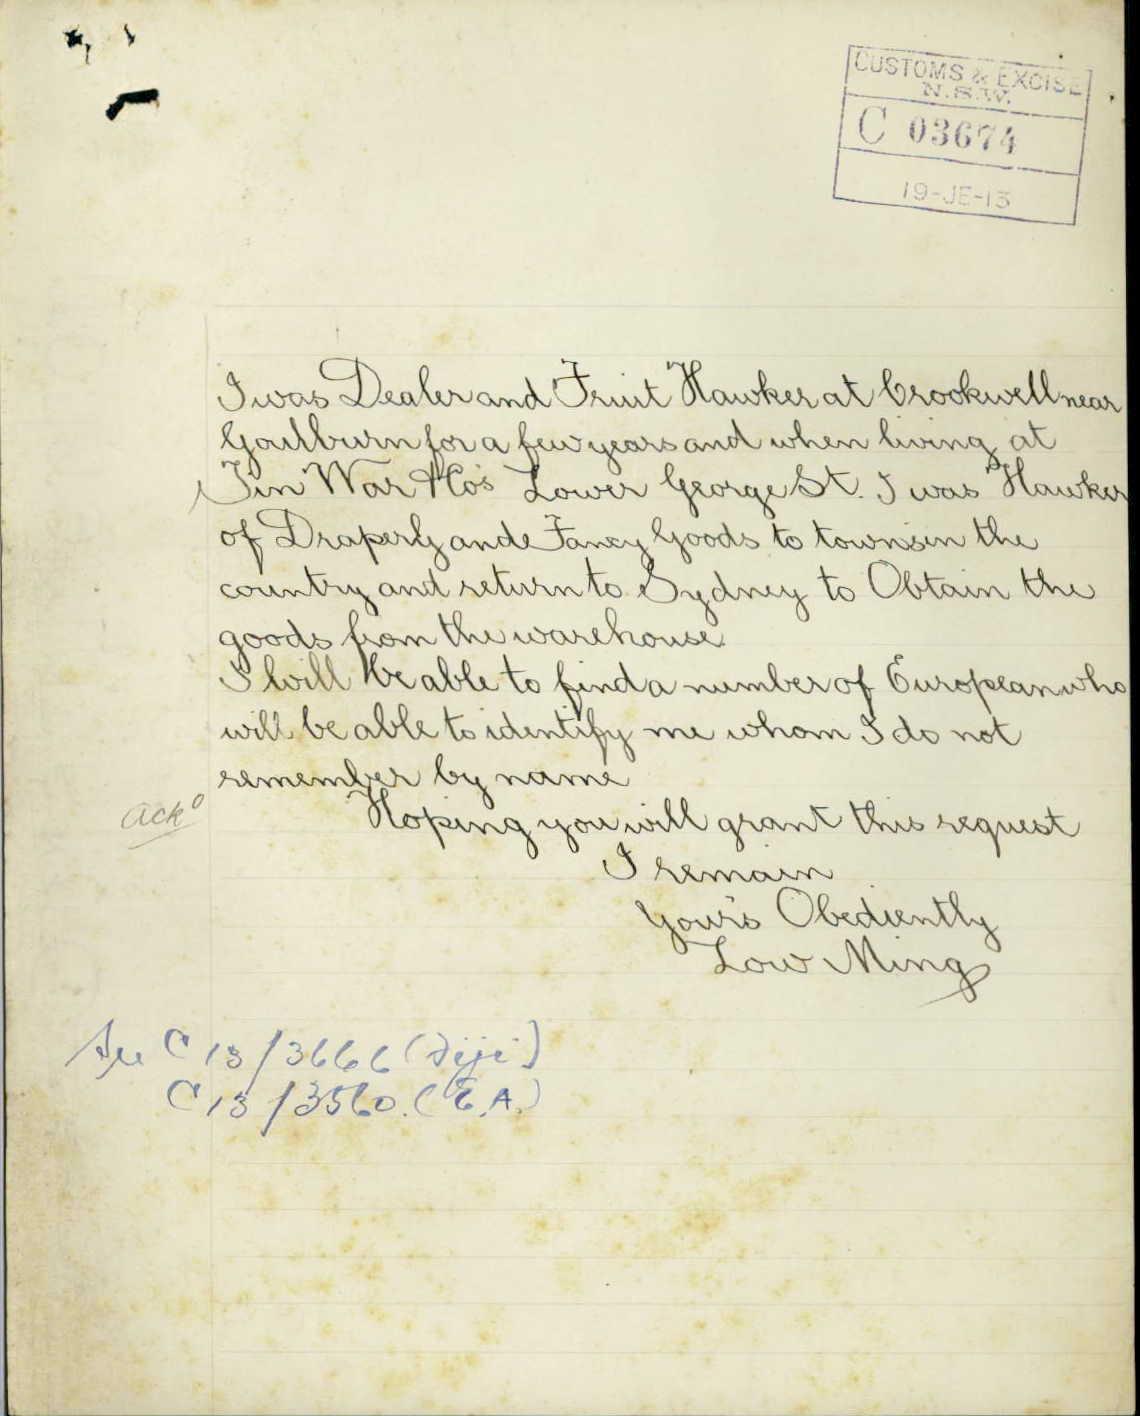 CUSTOMS & EXCISE
N.S.W.
C 03674
19-JE-13
I was Dealer and Fruit Hawker at Crookwell near
Goulburn for a few years and when living at
Jin War Ho's Lower George St. I was Hawker
of Draperly ande Fancy Goods to towns in the
country and return to Sydney to Obtain the
goods from the warehouse
I will be able to find a number of European who
will be able to identify me whom I do not
remember by name
Ack^d
Hoping you will grant this request
I remain
Your's Obediently
Low Ming
C 13/3666 (Fiji)
C 13/3560. (E.A.)